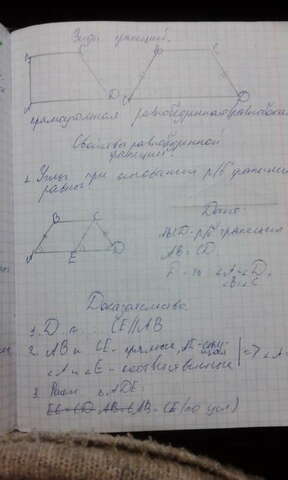 Виды трапеций.
B C B C
A D A D
прямоугольная равнобедренная
Свойства равнобедренной
трапеции
1. Углы при основании р/б трапеции
равны
B C
A E D
Дано:
ABCD - р/б трапеция
AB = CD
∠A = ∠D,
∠B = ∠C
Доказательство
1. CE || AB
2. AB и CE - прямые, AE -
∠A и ∠E - соответственные => ∠A
3. ΔCDE:
EC = CD AB = CE (по усл)